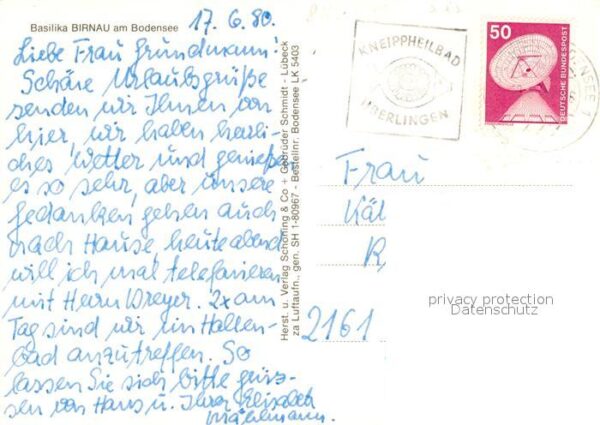 Basilika BIRNAU am Bodensee
17. 6. 80.
Liebe Frau Grundmann!
Schöne Urlaubsgrüße
senden wir Ihnen von
hier, wir haben herrli-
ches Wetter und genießen
es so sehr, aber unsere
Gedanken gehen auch
nach Hause, heute abend
will ich mal telefonieren
mit Herrn Dreyer. 2x am
Tag sind wir im Hallen-
bad anzutreffen. So
lassen Sie sich bitte grüs-
sen von Hans u. Ihrer Elisabeth
Herst. u. Verlag Schöning & Co + Gebrüder Schmidt - Lübeck
za Luftaufn., gen. SH 1-80967 - Bestellnr. Bodensee LK 5403
KNEIPPHEILBAD
ÜBERLINGEN
50
DEUTSCHE BUNDESPOST
Frau
Kät
R,
2161
privacy protection
Datenschutz